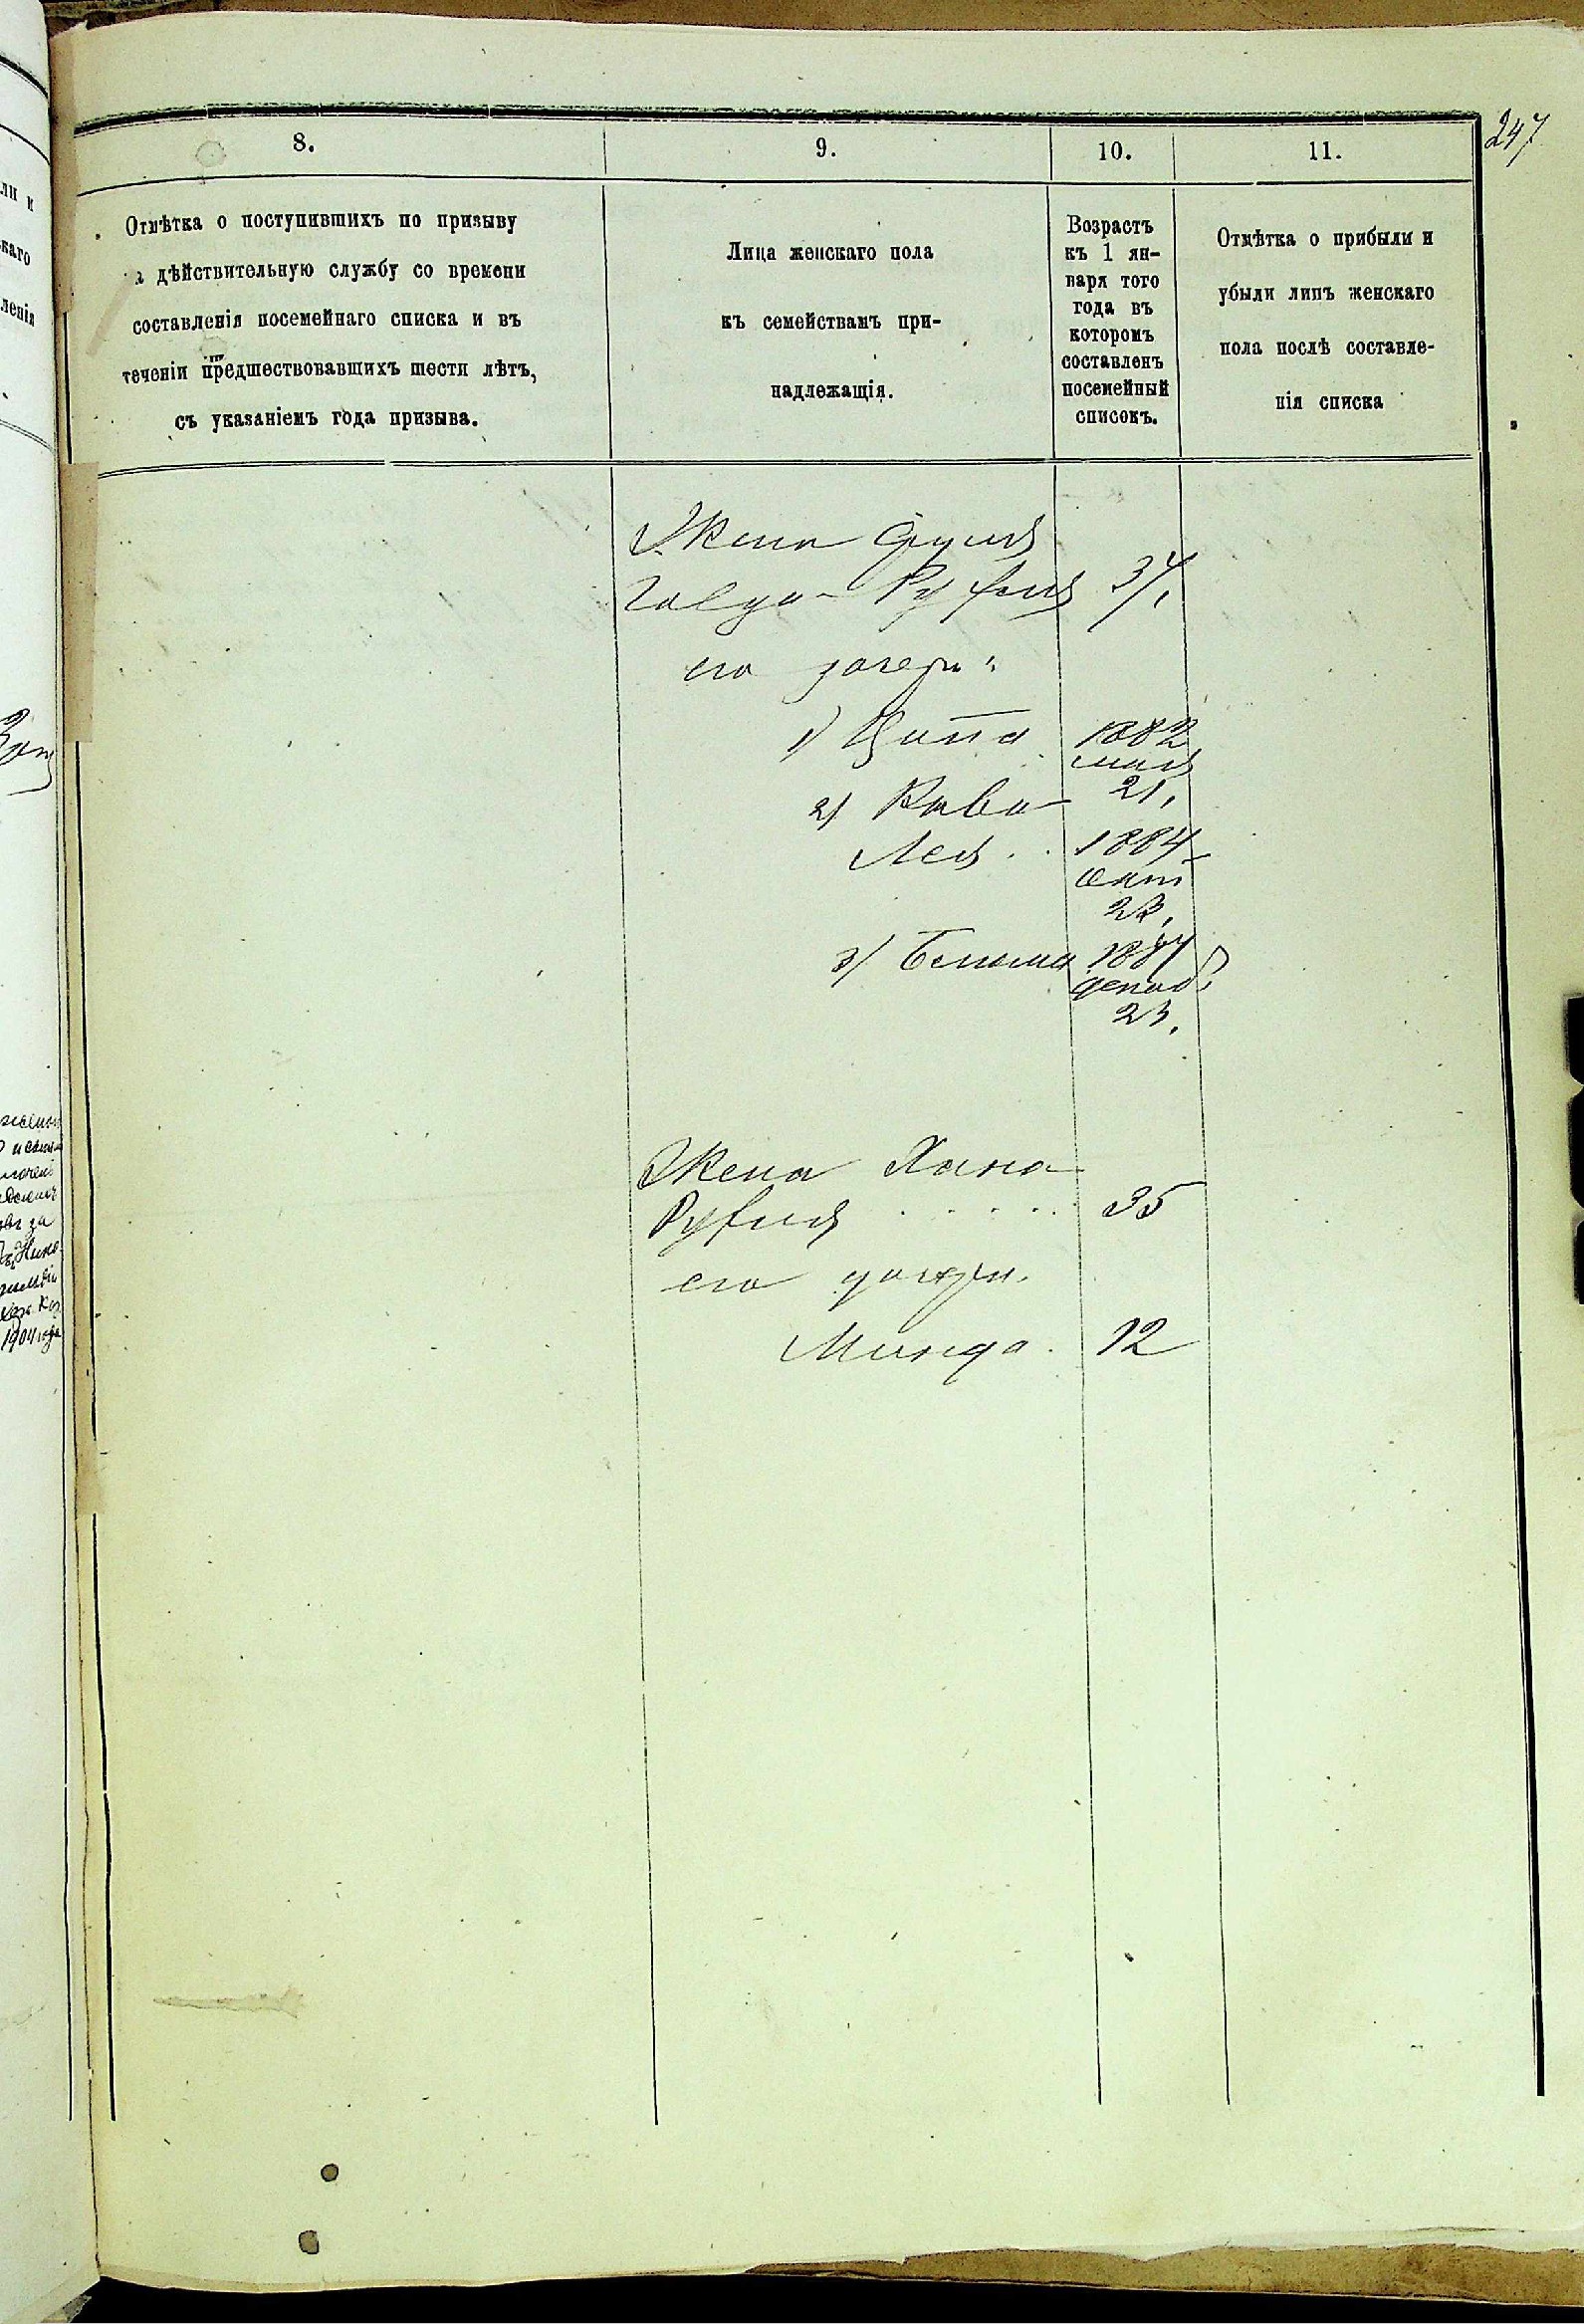 247
8.
9.
10.
11.
Отмѣтка о поступившихъ по призыву
дѣйствительную службу со времени
составленія посемейнаго списка и въ
теченіи предшествовавшихъ шести лѣтъ,
съ указаніемъ года призыва.
Лица женскаго пола
къ семействамъ при-
надлежащія.
Возрастъ
къ 1 ян-
варя того
года въ
которомъ
составленъ
посемейный
списокъ.
Отмѣтка о прибыли и
убыли лицъ женскаго
пола послѣ составле-
нія списка
Жена
34,
его дочери:
1) Ципа 1882
мая
2) Рива 21,
Лея . . 1884
окт
23,
3) 1887
декаб
23.
Жена Хана
Руфиля . . . . . 35
его дочери.
Минда . 12
1904 года